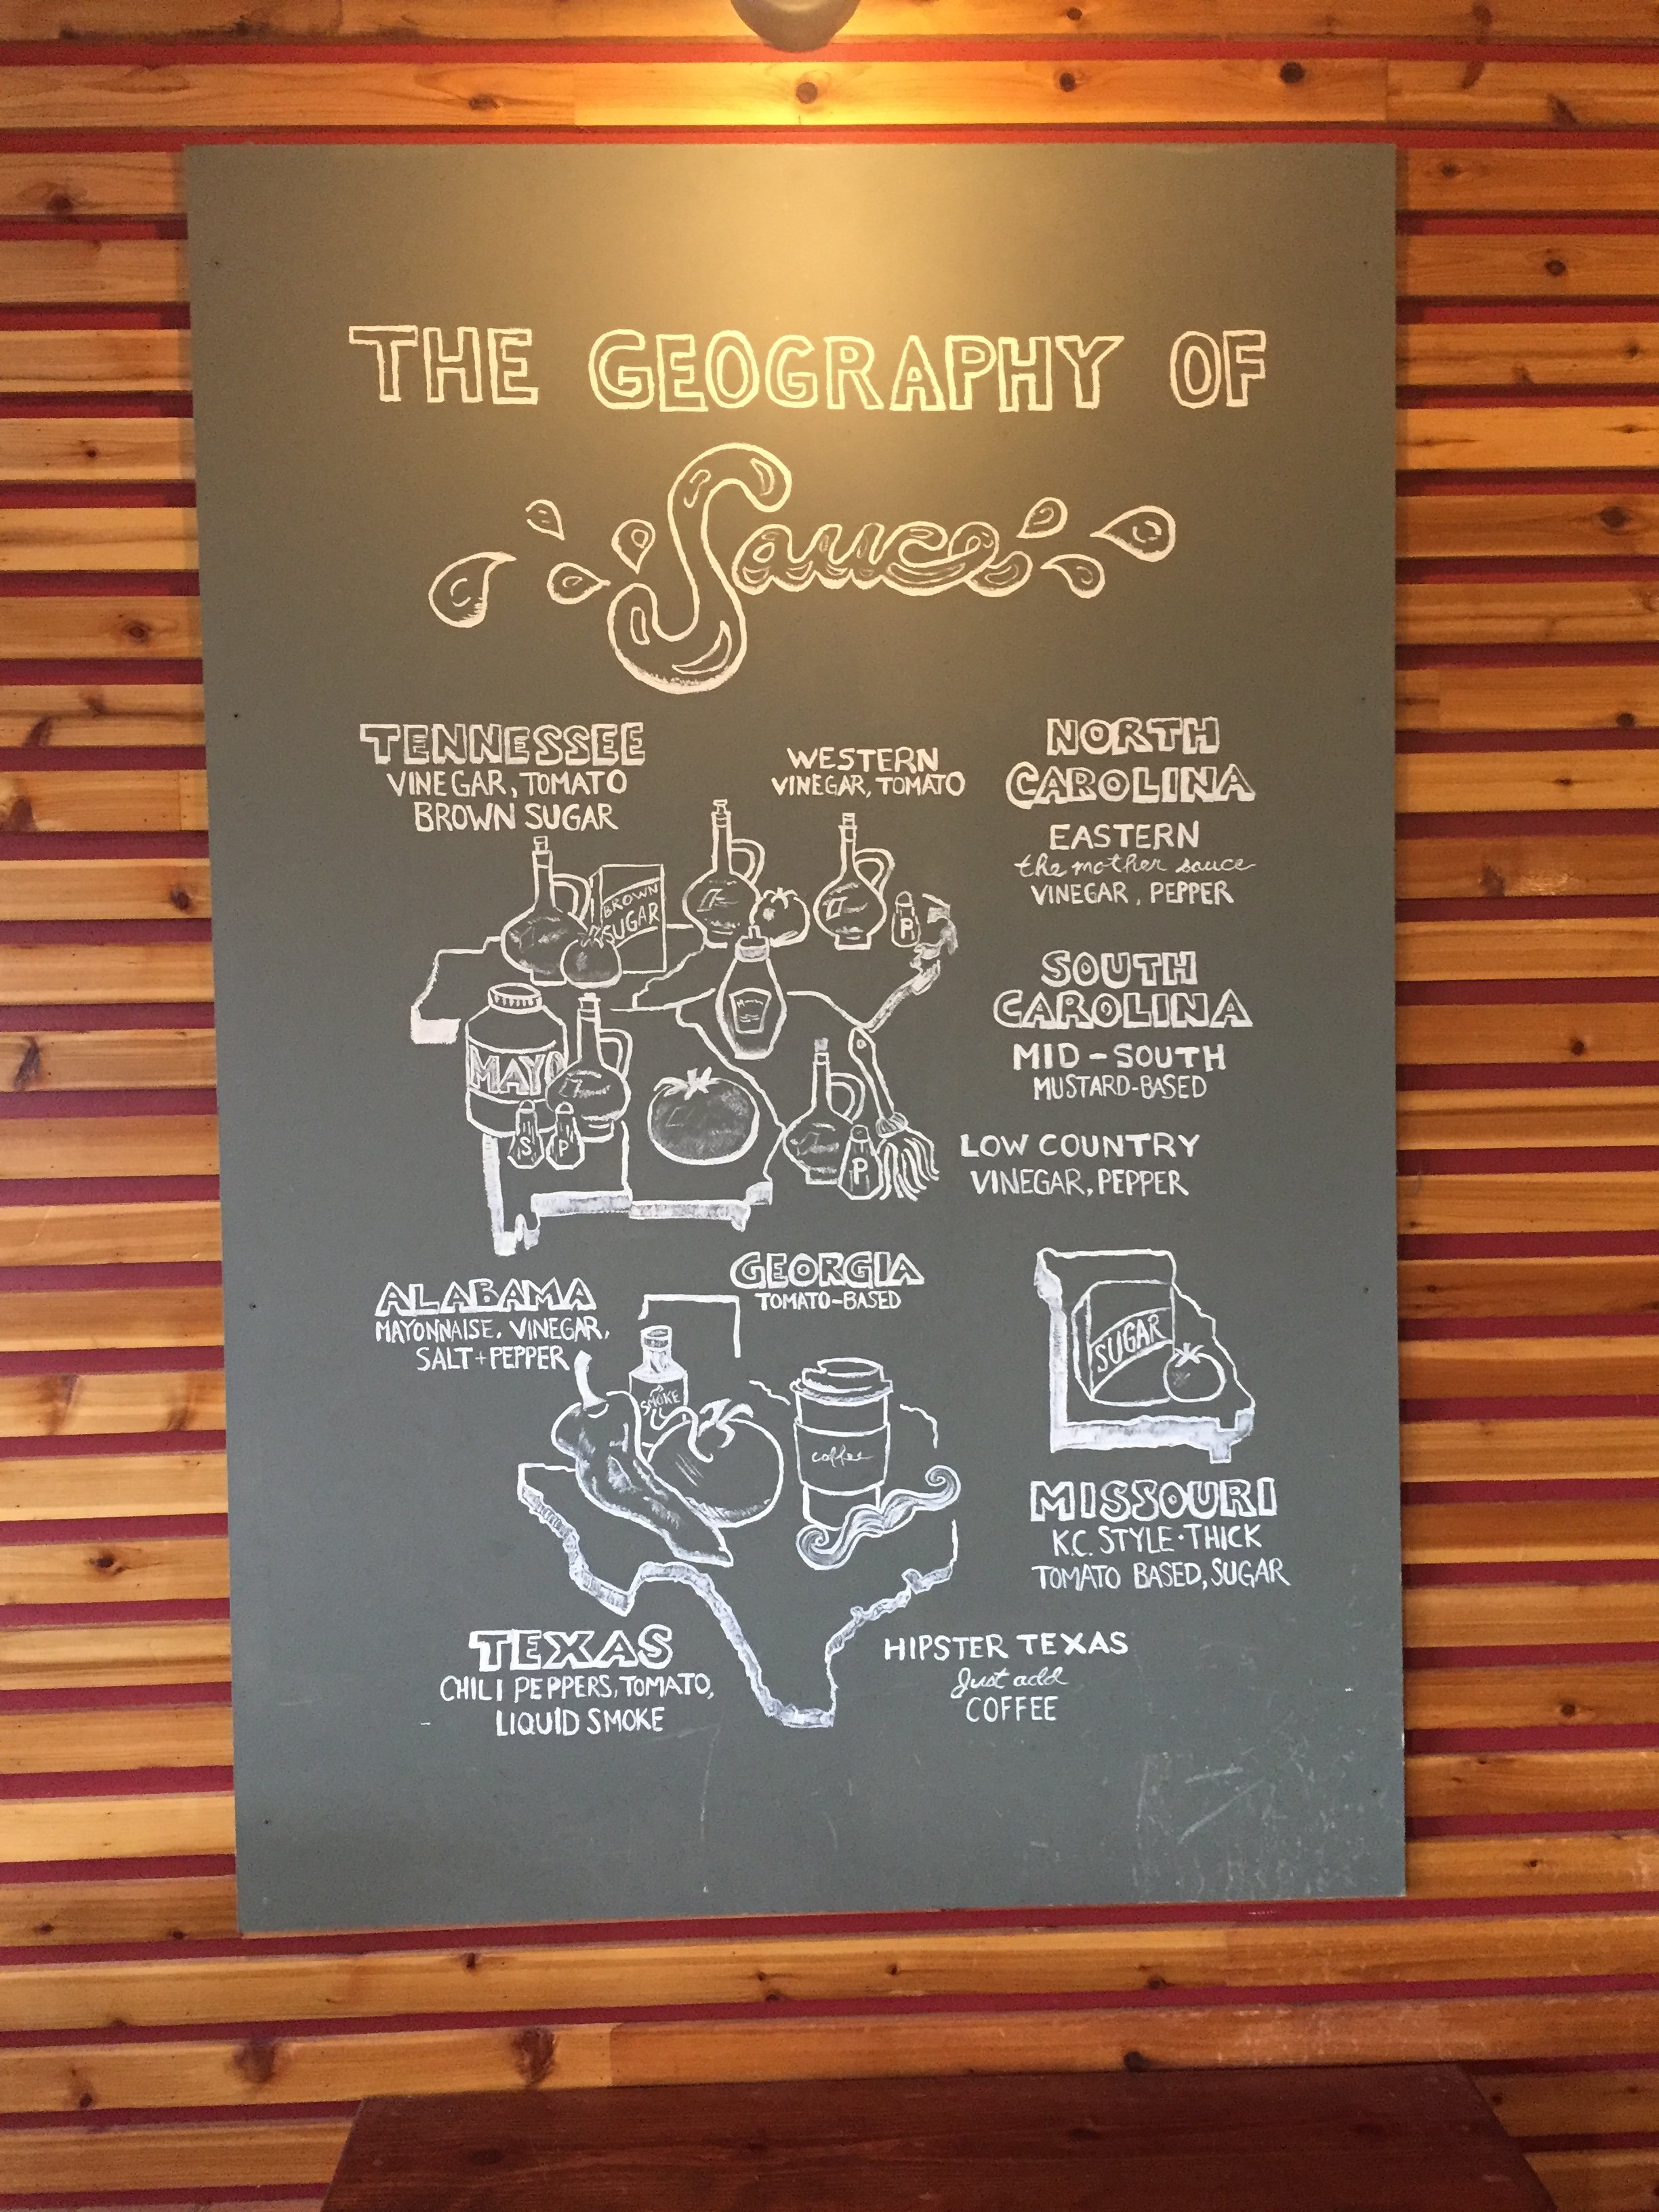 THE GEOGRAPHY OF
Sauce
TENNESSEE
VINEGAR, TOMATO
BROWN SUGAR
WESTERN
VINEGAR, TOMATO
NORTH
CAROLINA
EASTERN
the mother sauce
VINEGAR, PEPPER
BROWN
SUGAR
P
SOUTH
CAROLINA
MID-SOUTH
MUSTARD-BASED
MAYO
S P
P
LOW COUNTRY
VINEGAR, PEPPER
GEORGIA
TOMATO-BASED
ALABAMA
MAYONNAISE, VINEGAR,
SALT + PEPPER
SMOKE
coffee
SUGAR
MISSOURI
K.C. STYLE · THICK
TOMATO BASED, SUGAR
TEXAS
CHILI PEPPERS, TOMATO,
LIQUID SMOKE
HIPSTER TEXAS
Just add
COFFEE